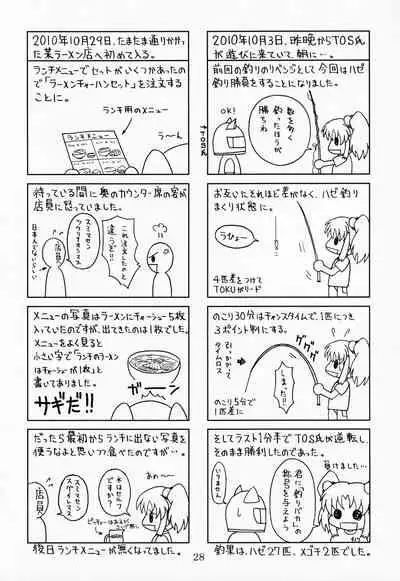 2010年10月3日、昨晩からTOS氏
が遊びに来ていて、朝に…。
前回の釣りのリベンジとして今回はハゼ
釣り勝負をすることになりました。
OK!
↑TOS氏
数を多く
釣ったほうが
勝ちね
お互いそれほど差がなく、ハゼ釣り
まくり状態に。
うひょー
4匹差をつけて
TOKUがリード
のこり30分はチャンスタイムで、1匹につき
3ポイント判にする。
グググ
引っかかって
タイムロス
しまった!!
のこり5分で
1匹差に
そしてラスト1分半でTOS氏が逆転し、
そのまま勝利したのであった。
負けました…
君に「釣りバカ」の
称号を与えよう
いりません
釣果は、ハゼ27匹、メゴチ2匹でした。
2010年10月29日、たまたま通りかかっ
た某ラーメン店へ初めて入る。
ランチメニューでセットがいくつかあったの
で「ラーメンチャーハンセット」を注文する
ことに。
ランチ用のメニュー
ランチメニュー
うーん
待っている間に奥のカウンター席の客が
店員に怒っていました。
これ注文したのと
違うぞ!!
スミマセン
ツクリナオシマス
店員
日本人でないらしい
メニューの写真はラーメンにチャーシュー5枚
入っていたのですが、出てきたのは1枚でした。
メニューをよく見ると
小さい字で「ランチのラーメン
はチャーシューが1枚」と
書いてありました。
サギだ!!
ガーーン
だったら最初からランチに出ない写真を
使うなよと思いつつ食べたのですが…。
あの〜
水はセルフ
ですか?
スミマセン
スグイレマス
店員
後日ランチメニューが無くなってました。
28